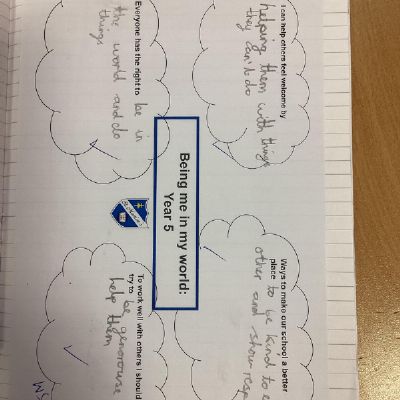 I can help others feel welcome by
helping them with things
they can't do
Everyone has the right to be in
the world and do
things
Being me in my world:
Year 5
Ways to make our school a better
place to be kind to e
other and show resp
To work well with others I should
try to be generouse
help them